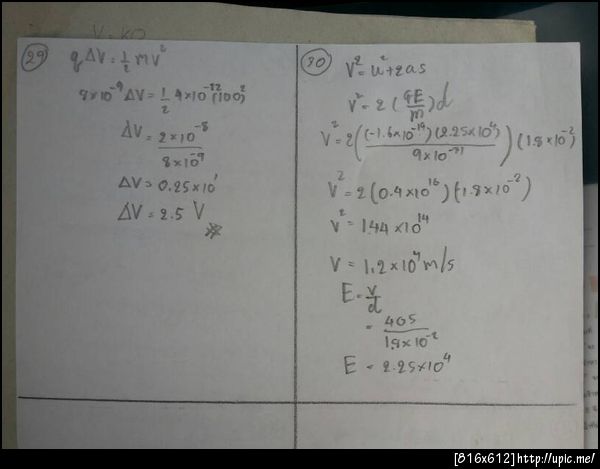 V = KQ
29
q ΔV = 1/2 mv²
8×10⁻⁹ ΔV = 1/2 4×10⁻¹²(100)²
ΔV = 2×10⁻⁸ / 8×10⁻⁹
ΔV = 0.25×10¹
ΔV = 2.5 V
30
V² = u²+2as
V² = 2(qE/m)d
V² = 2((-1.6×10⁻¹⁹)(2.25×10⁴) / 9×10⁻³¹)(1.8×10⁻²)
V² = 2(0.4×10¹⁶)(-1.8×10⁻²)
V² = 1.44×10¹⁴
V = 1.2×10⁷ m/s
E = V/d
= 405 / 1.8×10⁻²
E = 2.25×10⁴
[816x612]http://upic.me/